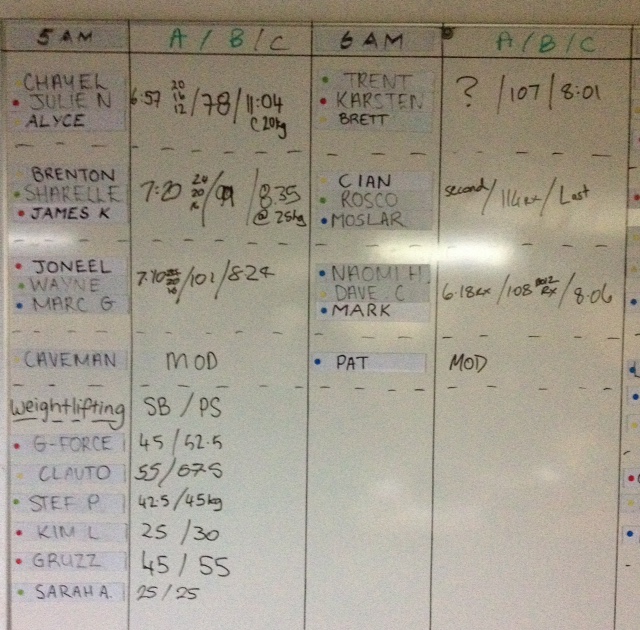 5 AM A / B / C
CHAYEL
JULIE N 6:57 20 16 12 /78/ 11:04
ALYCE C 20kg
BRENTON
SHARELLE 7:20 / / 8.35
JAMES K @ 25kg
JONEEL
WAYNE 7:10 /101/ 8:24
MARC G
CAVEMAN MOD
Weightlifting SB / PS
G-FORCE 45 / 52.5
CLAUTO 55/67.5
STEF P 42.5 / 45kg
KIM L 25 / 30
GRUZZ 45 / 55
SARAH A. 25 / 25
6 AM A / B / C
TRENT
KARSTEN ? / 107 / 8:01
BRETT
CIAN
ROSCO second / 114 RX / Last
MOSLAR
NAOMI H
DAVE C 6.18 RX / 108 RX / 8.06
MARK
PAT MOD